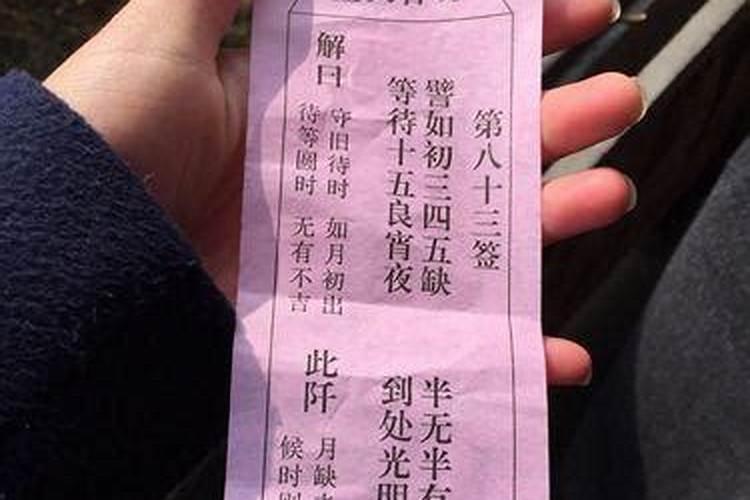 第八十三签
譬如初三四五缺 半无半有
等待十五良宵夜 到处光明
解曰
守旧待时 如月初出
待等圆时 无有不吉
此阡
月缺
候时